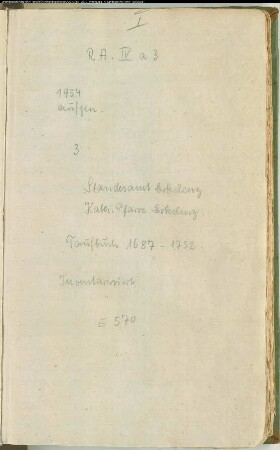 I
R.A. IV a 3
1954
aufgen.
3
Standesamt Erkelenz
Kath. Pfarre Erkelenz
Taufbuch 1687 - 1752
Inventarisiert
E 570